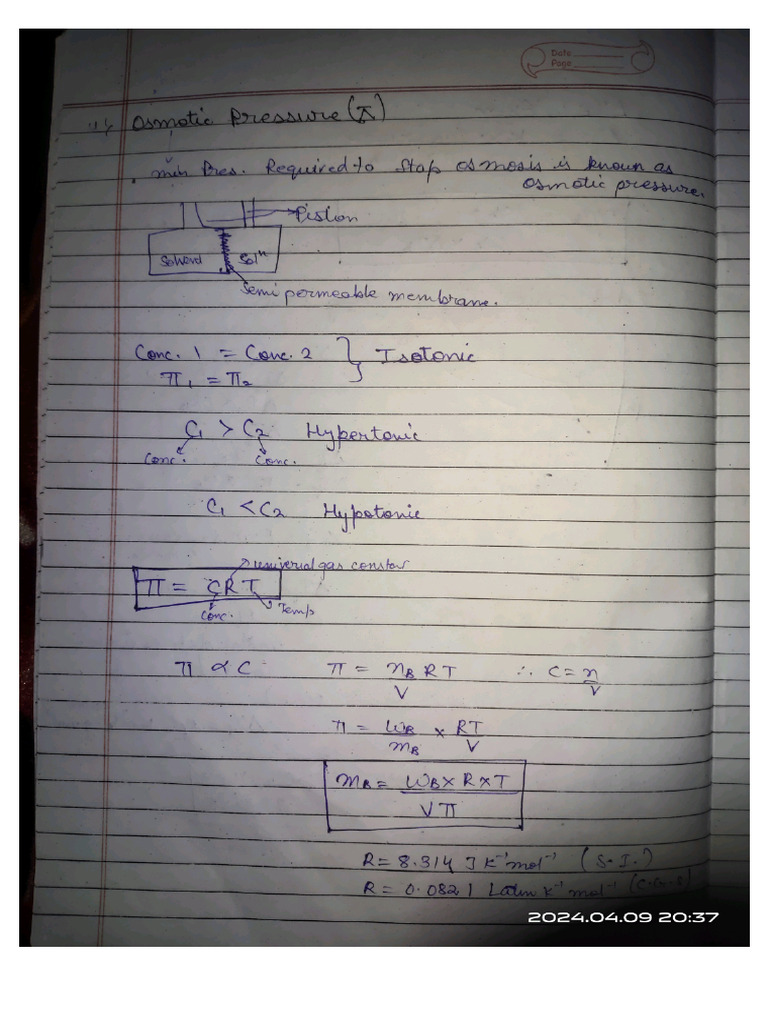 Date
Page
Osmotic Pressure (π)
min Pres. Required to stop osmosis is known as
osmotic pressure.
Piston
Solvent Solⁿ
Semi permeable membrane.
Conc. 1 = Conc. 2 } Isotonic
π₁ = π₂
C₁ > C₂ Hypertonic
Conc. Conc.
C₁ < C₂ Hypotonic
universal gas constan
π = CRT
Conc. Temp
π ∝ C π = n_B RT / V ∴ C = n / V
π = W_B / m_B × RT / V
m_B = W_B × R × T / V π
R = 8.314 J K⁻¹ mol⁻¹ (S.I.)
R = 0.0821 Latm K⁻¹ mol⁻¹ (C.G.S)
2024.04.09 20:37